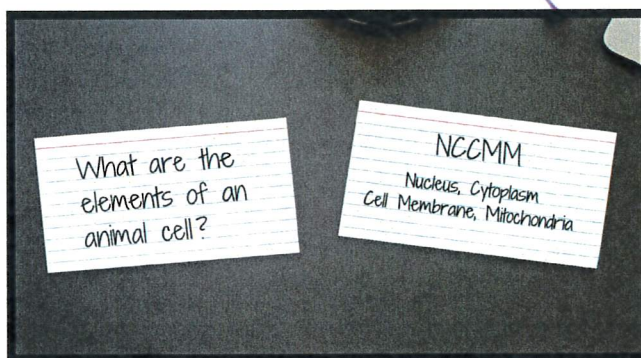 What are the
elements of an
animal cell?
NCCMM
Nucleus, Cytoplasm
Cell Membrane, Mitochondria